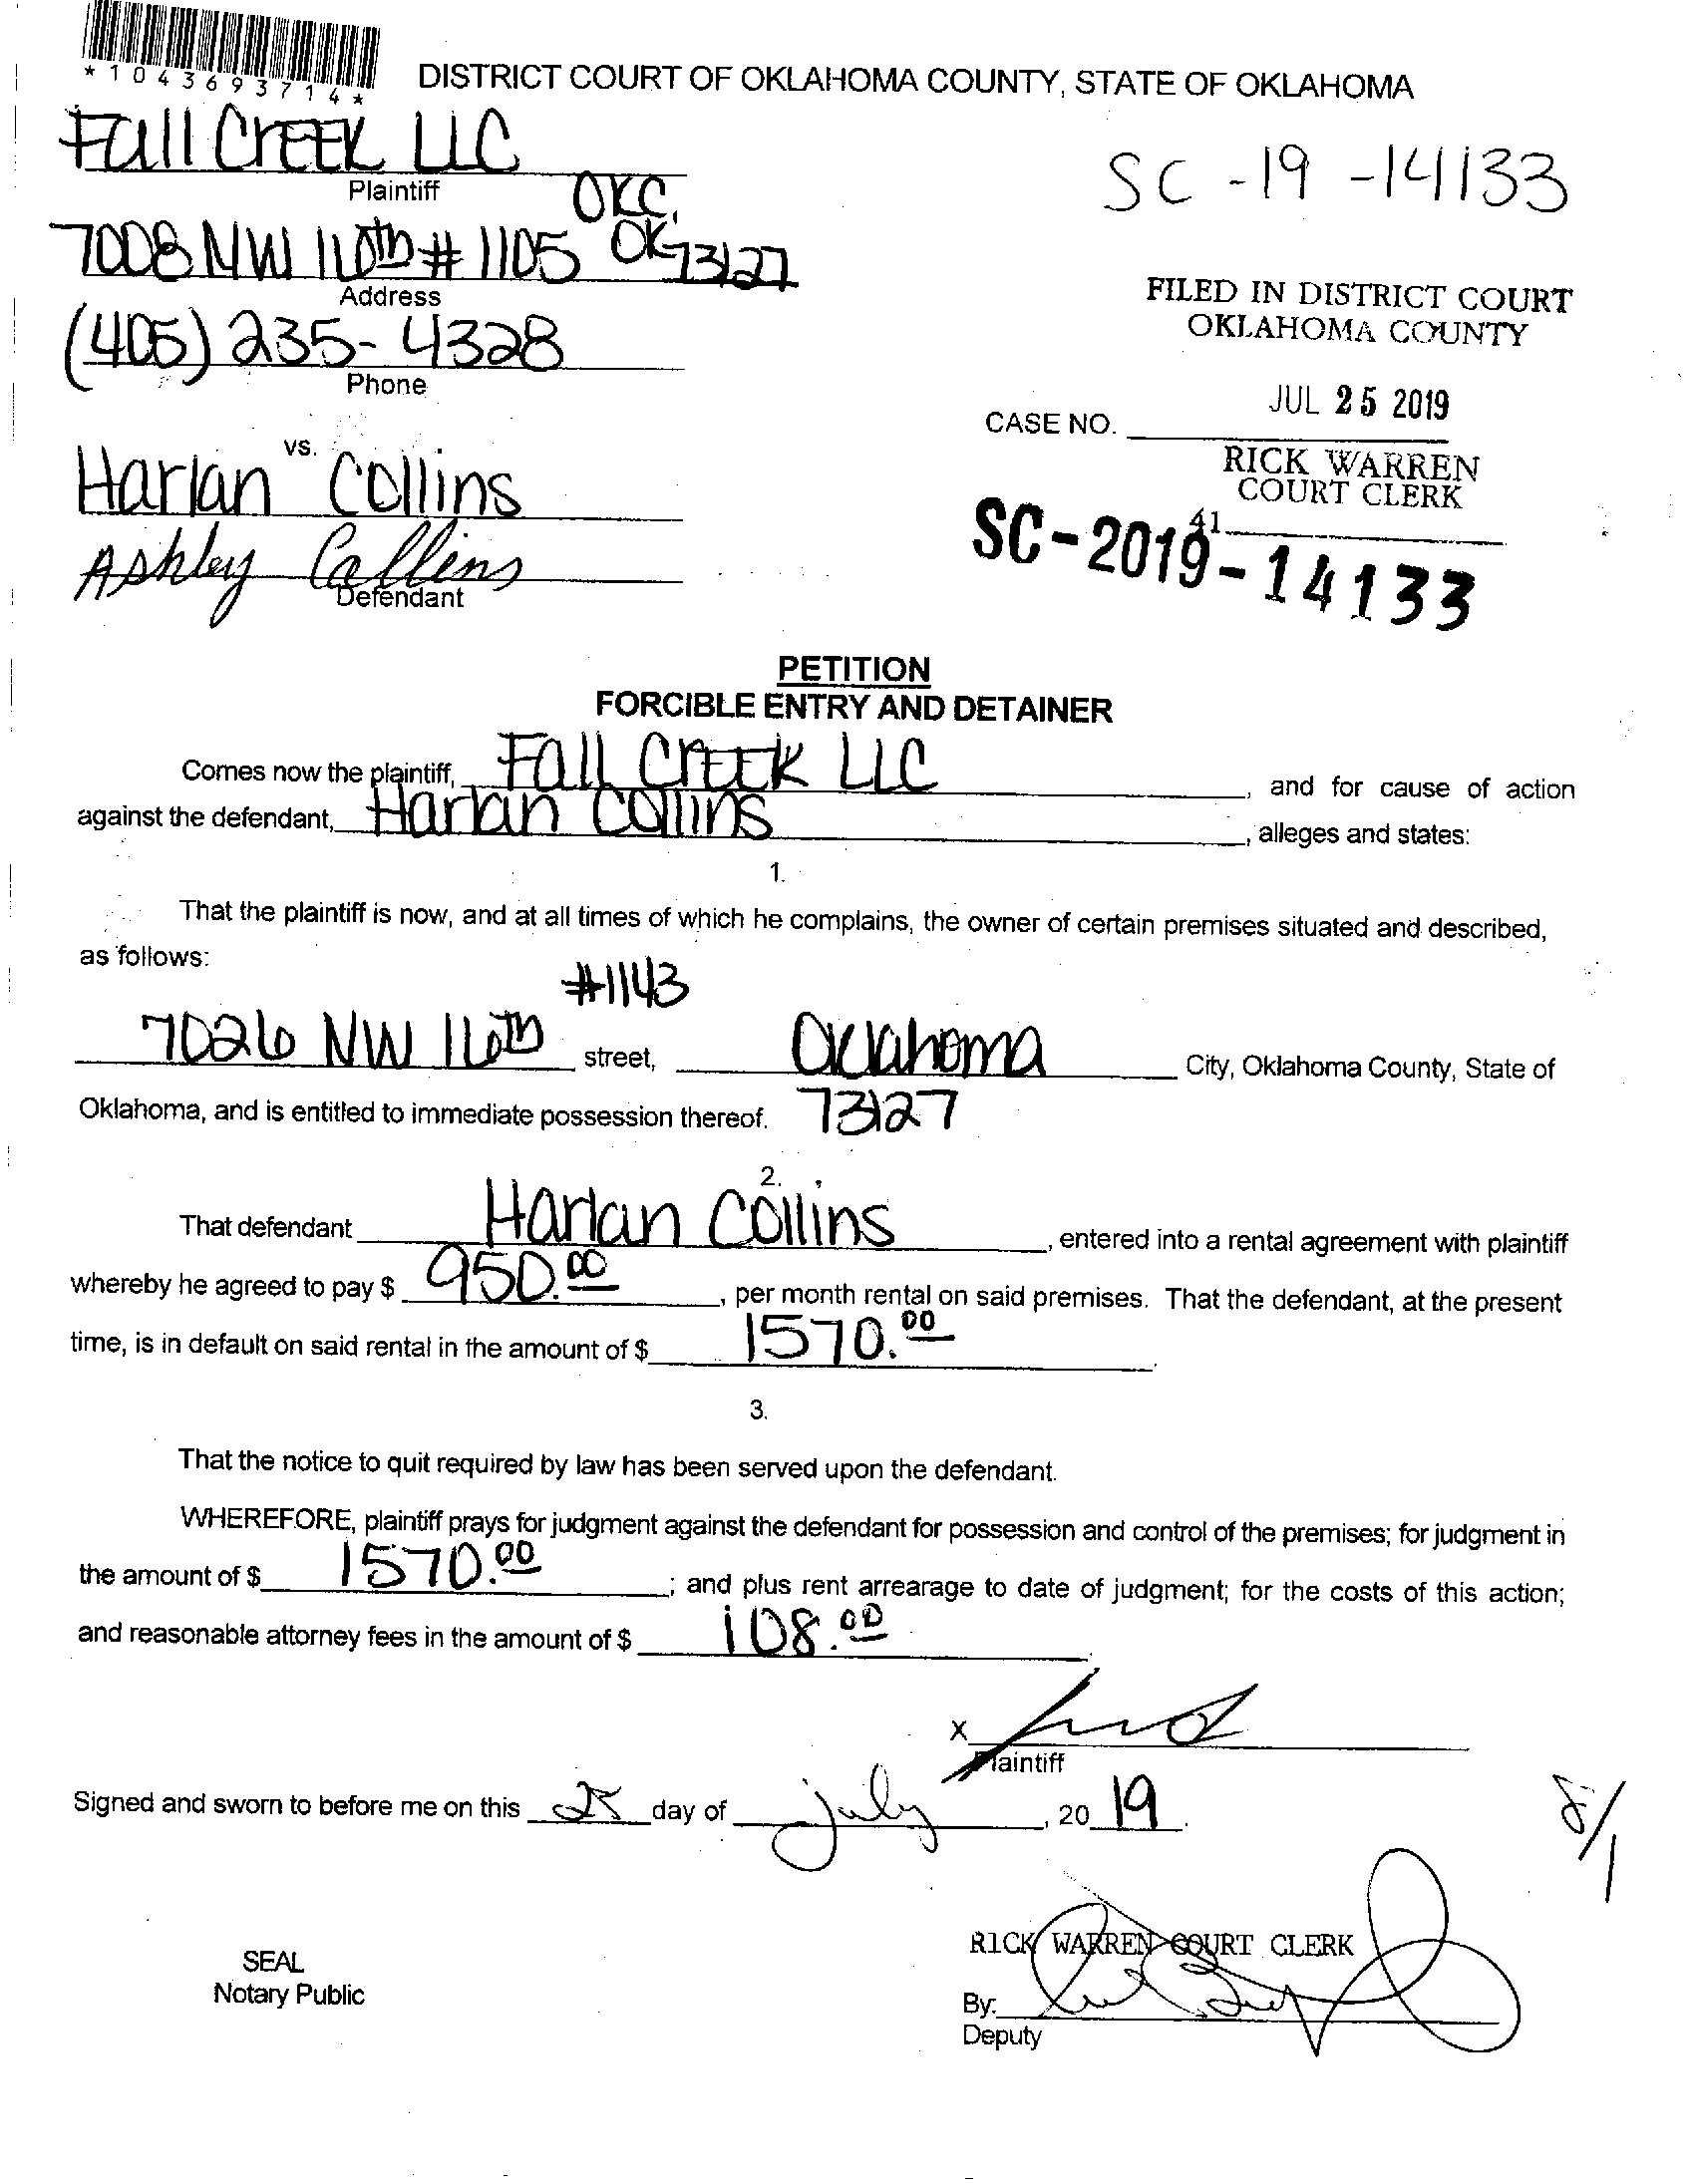 *1043693714*
DISTRICT COURT OF OKLAHOMA COUNTY, STATE OF OKLAHOMA
Fall Creek LLC
Plaintiff
SC-19-14133
OKC,
7008 NW 16th # 1105 OK 73127
Address
FILED IN DISTRICT COURT
OKLAHOMA COUNTY
(405) 235-4328
Phone
JUL 25 2019
CASE NO.
vs.
RICK WARREN
COURT CLERK
Harlan Collins
41
SC-2019-14133
Ashley Collins
Defendant
PETITION
FORCIBLE ENTRY AND DETAINER
Comes now the plaintiff, Fall Creek LLC, and for cause of action
against the defendant, Harlan Collins, alleges and states:
1.
That the plaintiff is now, and at all times of which he complains, the owner of certain premises situated and described,
as follows:
#1143
7026 NW 16th street, Oklahoma City, Oklahoma County, State of
Oklahoma, and is entitled to immediate possession thereof. 73127
2.
That defendant Harlan Collins, entered into a rental agreement with plaintiff
whereby he agreed to pay $ 950.00, per month rental on said premises. That the defendant, at the present
time, is in default on said rental in the amount of $ 1570.00.
3.
That the notice to quit required by law has been served upon the defendant.
WHEREFORE, plaintiff prays for judgment against the defendant for possession and control of the premises; for judgment in
the amount of $ 1570.00; and plus rent arrearage to date of judgment; for the costs of this action;
and reasonable attorney fees in the amount of $ 108.00.
X
Plaintiff
Signed and sworn to before me on this 25 day of July, 2019.
8/1
RICK WARREN COURT CLERK
SEAL
Notary Public
By:
Deputy